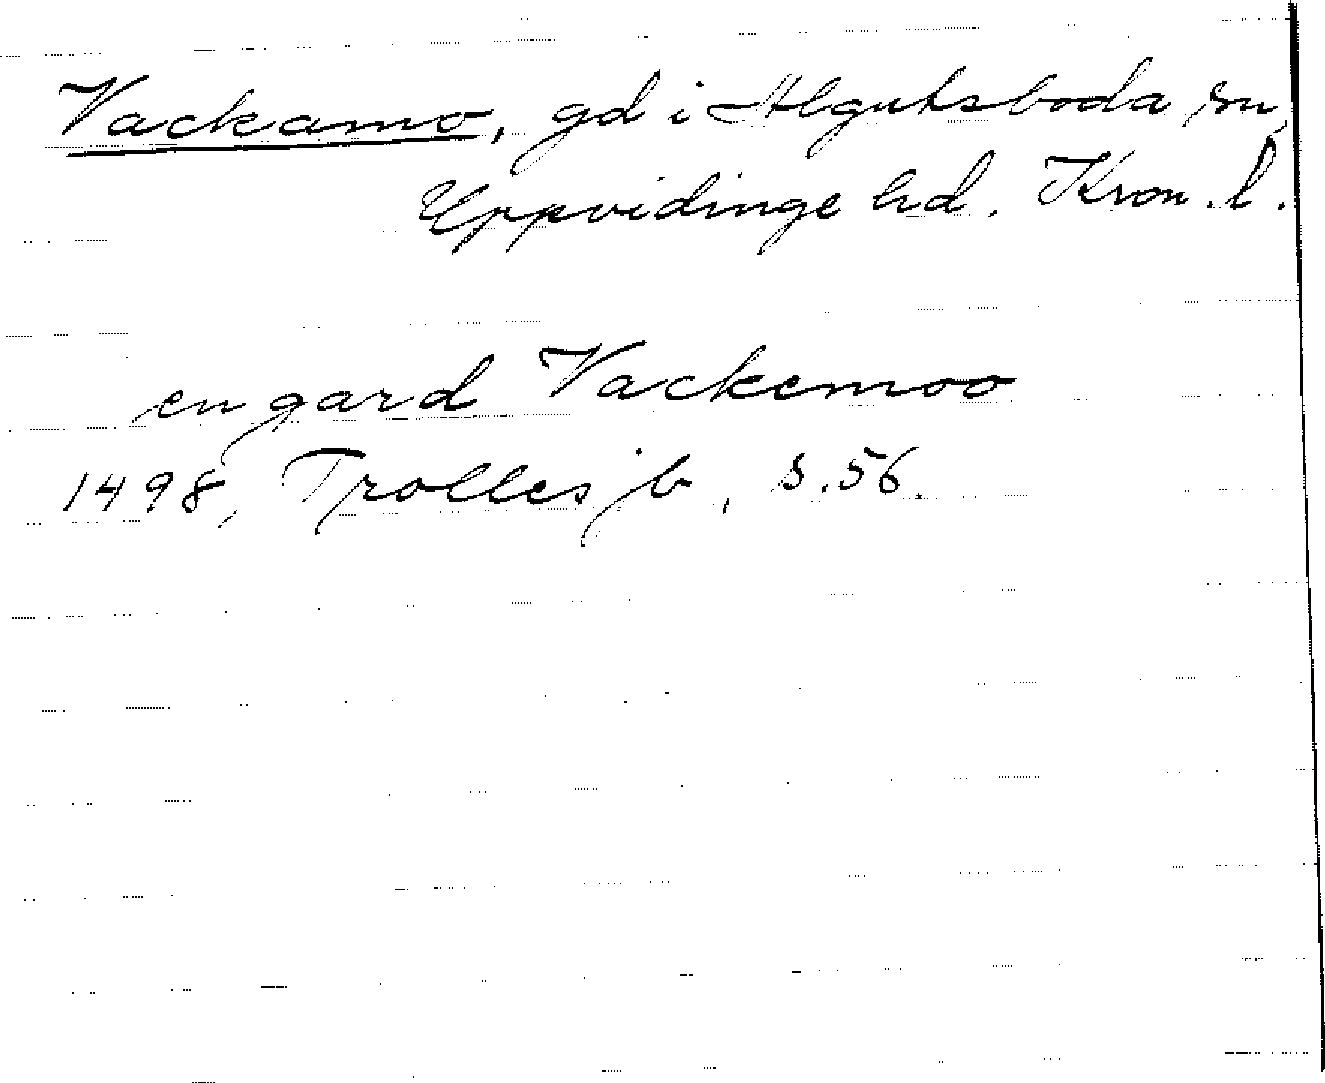 Vackamo, gd i Algutsboda sn,
Uppvidinge hd. Kron. l.
en gard Vackemoo
1498, Trolles jb, s. 56.